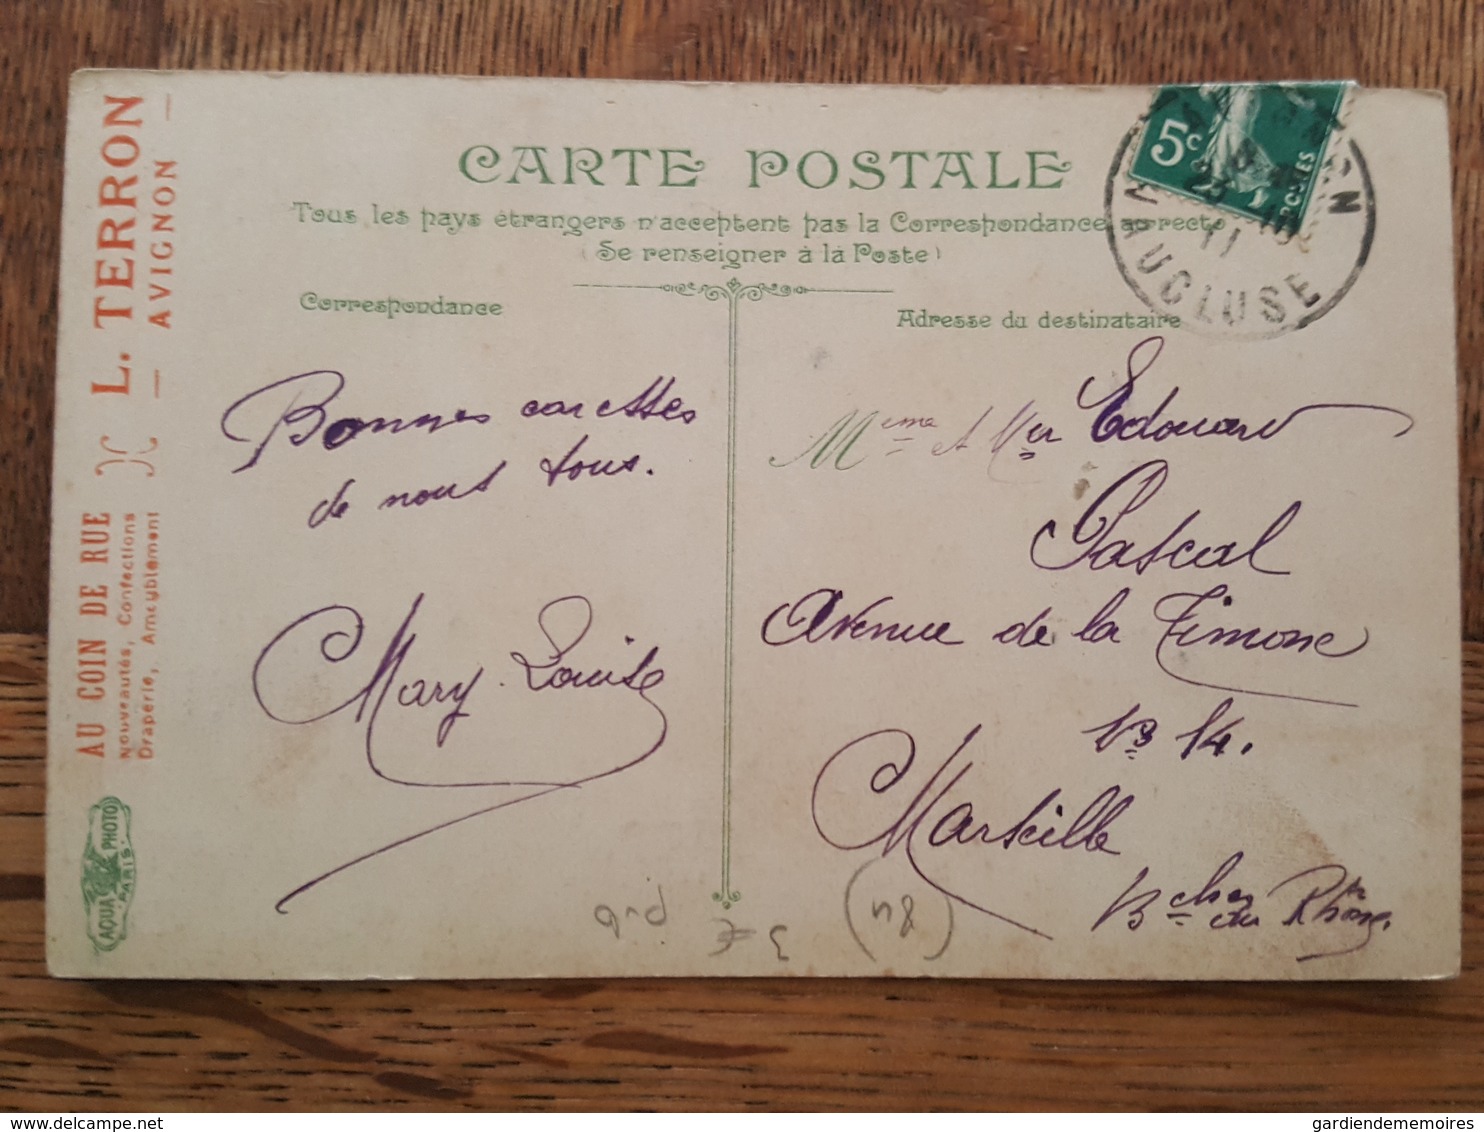 CARTE POSTALE
Tous les pays étrangers n'acceptent pas la Correspondance au recto
(Se renseigner à la Poste)
Correspondance
Adresse du destinataire
L. TERRON
— AVIGNON —
AU COIN DE RUE
Nouveautés, Confections
Draperie, Ameublement
AQUA PHOTO
PARIS
5c
POSTES
AVIGNON
23
11
VAUCLUSE
Bonnes caresses
de nous tous.
Mary-Louise
Mme et Mr Edouard
Pascal
Avenue de la Timone
No 14.
Marseille
Bches du Rhône.
3 €
gardiendememoires - delcampe.net